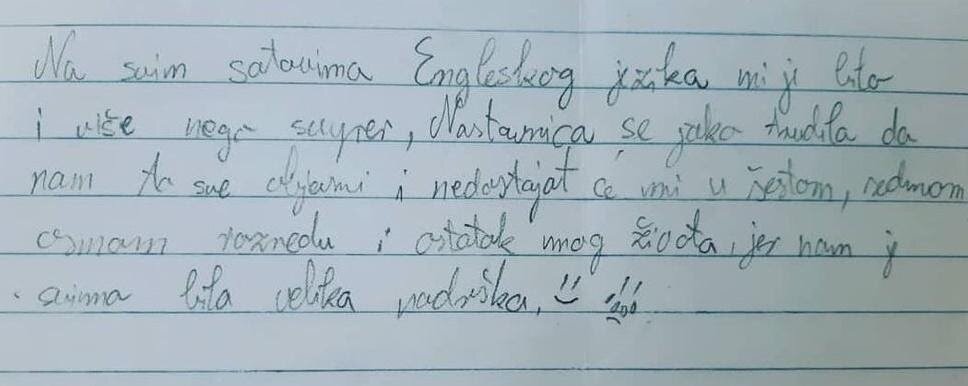 Na svim satovima Engleskog jezika mi je bilo
i više nego super, Nastavnica se jako trudila da
nam to sve objasni i nedostajat će mi u šestom, sedmom
osmom razredu i ostatak mog života, jer nam je
svima bila velika podrška.